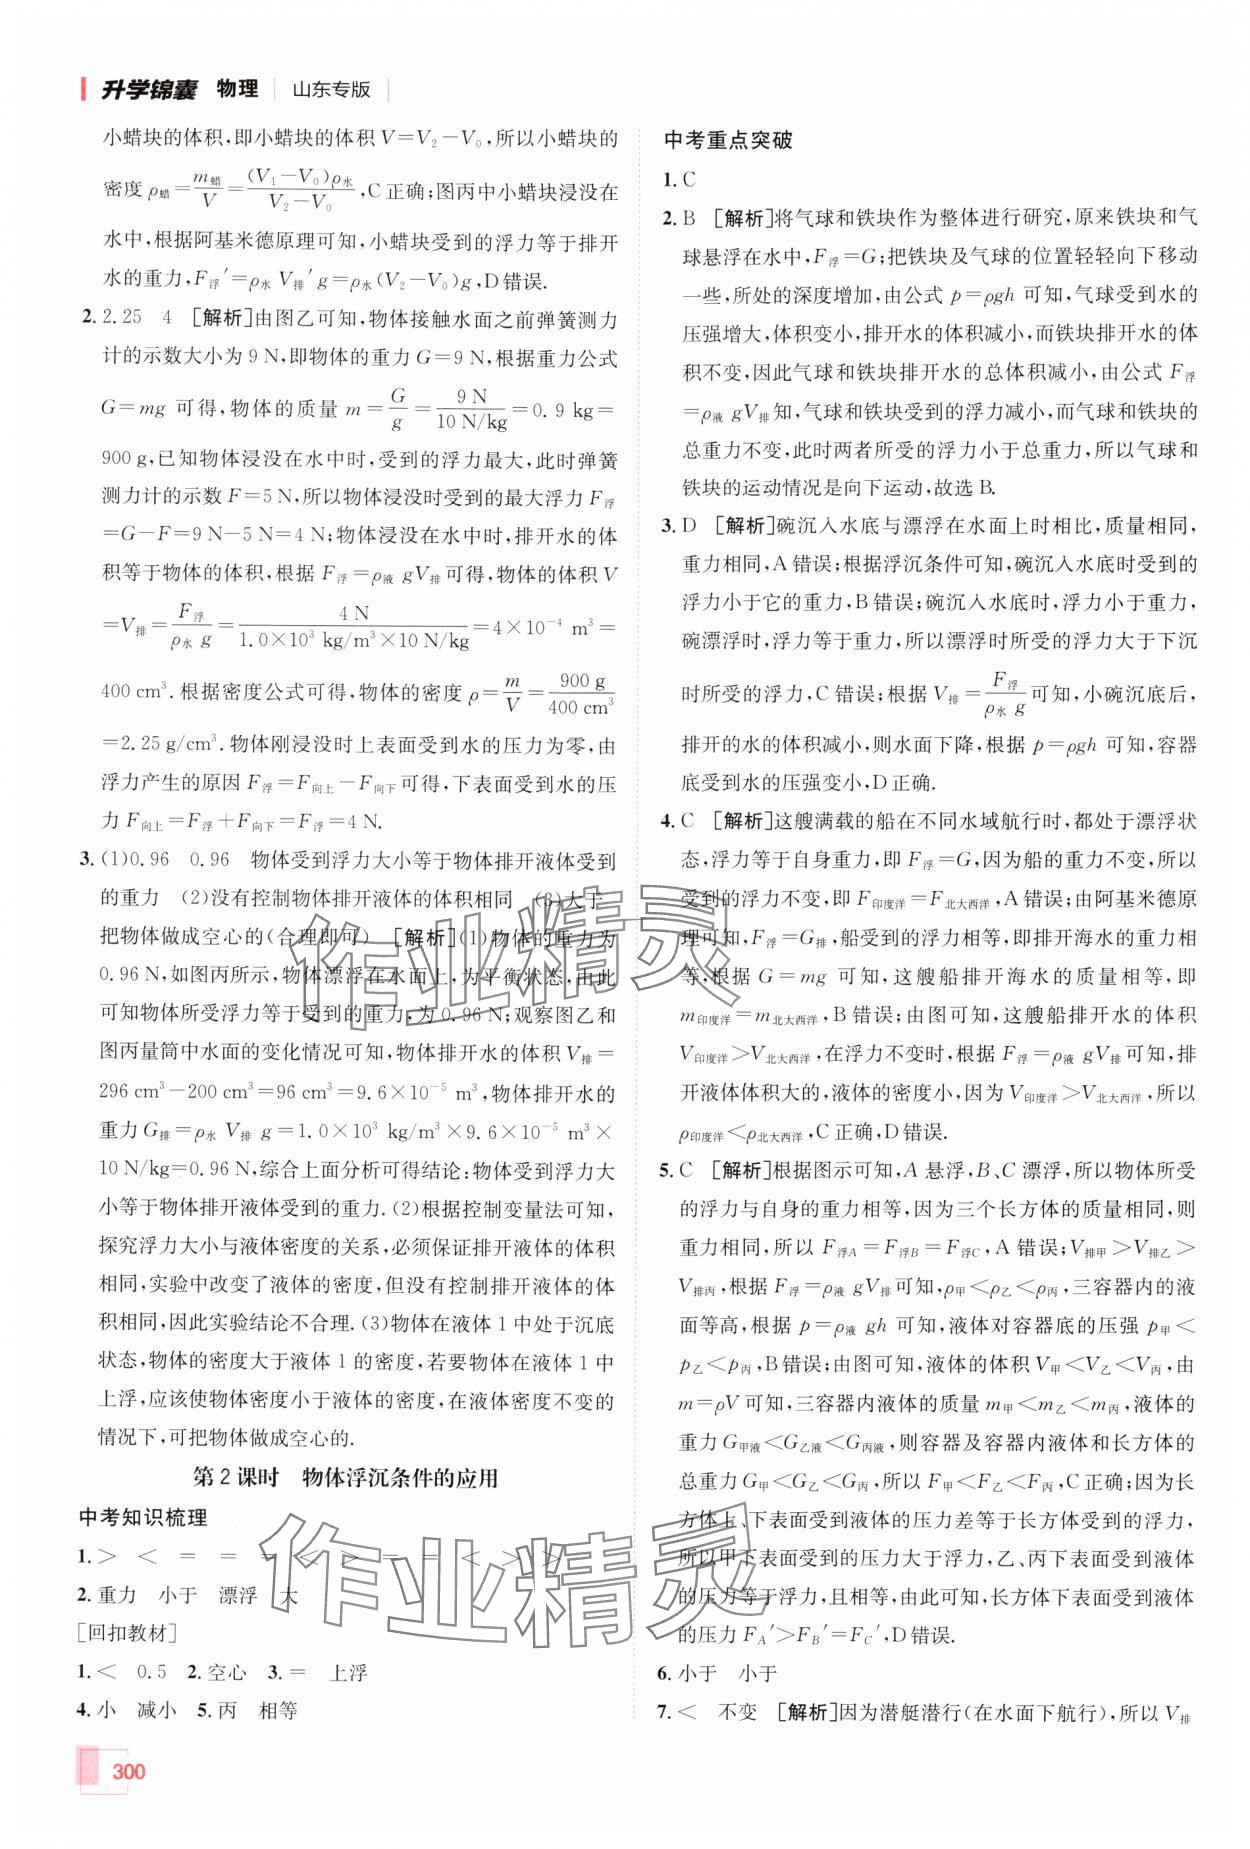 升学锦囊 物理 山东专版
小蜡块的体积,即小蜡块的体积V=V₂-V₀,所以小蜡块的
密度ρ蜡=m蜡/V=(V₁-V₀)ρ水/(V₂-V₀),C正确;图丙中小蜡块浸没在
水中,根据阿基米德原理可知,小蜡块受到的浮力等于排开
水的重力,F浮′=ρ水V排′g=ρ水(V₂-V₀)g,D错误.
2. 2.25 4 [解析]由图乙可知,物体接触水面之前弹簧测力
计的示数大小为9 N,即物体的重力G=9 N,根据重力公式
G=mg可得,物体的质量m=G/g=9 N/(10 N/kg)=0.9 kg=
900 g,已知物体浸没在水中时,受到的浮力最大,此时弹簧
测力计的示数F=5 N,所以物体浸没时受到的最大浮力F浮
=G-F=9 N-5 N=4 N;物体浸没在水中时,排开水的体
积等于物体的体积,根据F浮=ρ液gV排可得,物体的体积V
=V排=F浮/(ρ水g)=4 N/(1.0×10³ kg/m³×10 N/kg)=4×10⁻⁴ m³=
400 cm³.根据密度公式可得,物体的密度ρ=m/V=900 g/400 cm³
=2.25 g/cm³.物体刚浸没时上表面受到水的压力为零,由
浮力产生的原因F浮=F向上-F向下可得,下表面受到水的压
力F向上=F浮+F向下=F浮=4 N.
3. (1)0.96 0.96 物体受到浮力大小等于物体排开液体受到
的重力 (2)没有控制物体排开液体的体积相同 (3)大于
把物体做成空心的(合理即可) [解析](1)物体的重力为
0.96 N,如图丙所示,物体漂浮在水面上,为平衡状态,由此
可知物体所受浮力等于受到的重力,为0.96 N;观察图乙和
图丙量筒中水面的变化情况可知,物体排开水的体积V排=
296 cm³-200 cm³=96 cm³=9.6×10⁻⁵ m³,物体排开水的
重力G排=ρ水V排g=1.0×10³ kg/m³×9.6×10⁻⁵ m³×
10 N/kg=0.96 N,综合上面分析可得结论:物体受到浮力大
小等于物体排开液体受到的重力.(2)根据控制变量法可知,
探究浮力大小与液体密度的关系,必须保证排开液体的体积
相同,实验中改变了液体的密度,但没有控制排开液体的体
积相同,因此实验结论不合理.(3)物体在液体1中处于沉底
状态,物体的密度大于液体1的密度,若要物体在液体1中
上浮,应该使物体密度小于液体的密度,在液体密度不变的
情况下,可把物体做成空心的.
第2课时 物体浮沉条件的应用
中考知识梳理
1. > < = = = < > = = < > >
2. 重力 小于 漂浮 大
[回扣教材]
1. < 0.5 2. 空心 3. = 上浮
4. 小 减小 5. 丙 相等
300
中考重点突破
1. C
2. B [解析]将气球和铁块作为整体进行研究,原来铁块和气
球悬浮在水中,F浮=G;把铁块及气球的位置轻轻向下移动
一些,所处的深度增加,由公式p=ρgh可知,气球受到水的
压强增大,体积变小,排开水的体积减小,而铁块排开水的体
积不变,因此气球和铁块排开水的总体积减小,由公式F浮
=ρ液gV排知,气球和铁块受到的浮力减小,而气球和铁块的
总重力不变,此时两者所受的浮力小于总重力,所以气球和
铁块的运动情况是向下运动,故选B.
3. D [解析]碗沉入水底与漂浮在水面上时相比,质量相同,
重力相同,A错误;根据浮沉条件可知,碗沉入水底时受到的
浮力小于它的重力,B错误;碗沉入水底时,浮力小于重力,
碗漂浮时,浮力等于重力,所以漂浮时所受的浮力大于下沉
时所受的浮力,C错误;根据V排=F浮/(ρ水g)可知,小碗沉底后,
排开的水的体积减小,则水面下降,根据p=ρgh可知,容器
底受到水的压强变小,D正确.
4. C [解析]这艘满载的船在不同水域航行时,都处于漂浮状
态,浮力等于自身重力,即F浮=G,因为船的重力不变,所以
受到的浮力不变,即F印度洋=F北大西洋,A错误;由阿基米德原
理可知,F浮=G排,船受到的浮力相等,即排开海水的重力相
等,根据G=mg可知,这艘船排开海水的质量相等,即
m印度洋=m北大西洋,B错误;由图可知,这艘船排开水的体积
V印度洋>V北大西洋,在浮力不变时,根据F浮=ρ液gV排可知,排
开液体体积大的,液体的密度小,因为V印度洋>V北大西洋,所以
ρ印度洋<ρ北大西洋,C正确,D错误.
5. C [解析]根据图示可知,A悬浮,B、C漂浮,所以物体所受
的浮力与自身的重力相等,因为三个长方体的质量相同,则
重力相同,所以F浮A=F浮B=F浮C,A错误;V排甲>V排乙>
V排丙,根据F浮=ρ液gV排可知,ρ甲<ρ乙<ρ丙,三容器内的液
面等高,根据p=ρ液gh可知,液体对容器底的压强p甲<
p乙<p丙,B错误;由图可知,液体的体积V甲<V乙<V丙,由
m=ρV可知,三容器内液体的质量m甲<m乙<m丙,液体的
重力G甲液<G乙液<G丙液,则容器及容器内液体和长方体的
总重力G甲<G乙<G丙,所以F甲<F乙<F丙,C正确;因为长
方体上、下表面受到液体的压力差等于长方体受到的浮力,
所以甲下表面受到的压力大于浮力,乙、丙下表面受到液体
的压力等于浮力,且相等,由此可知,长方体下表面受到液体
的压力F_A′>F_B′=F_C′,D错误.
6. 小于 小于
7. < 不变 [解析]因为潜艇潜行(在水面下航行),所以V排
作业精灵
作业精灵